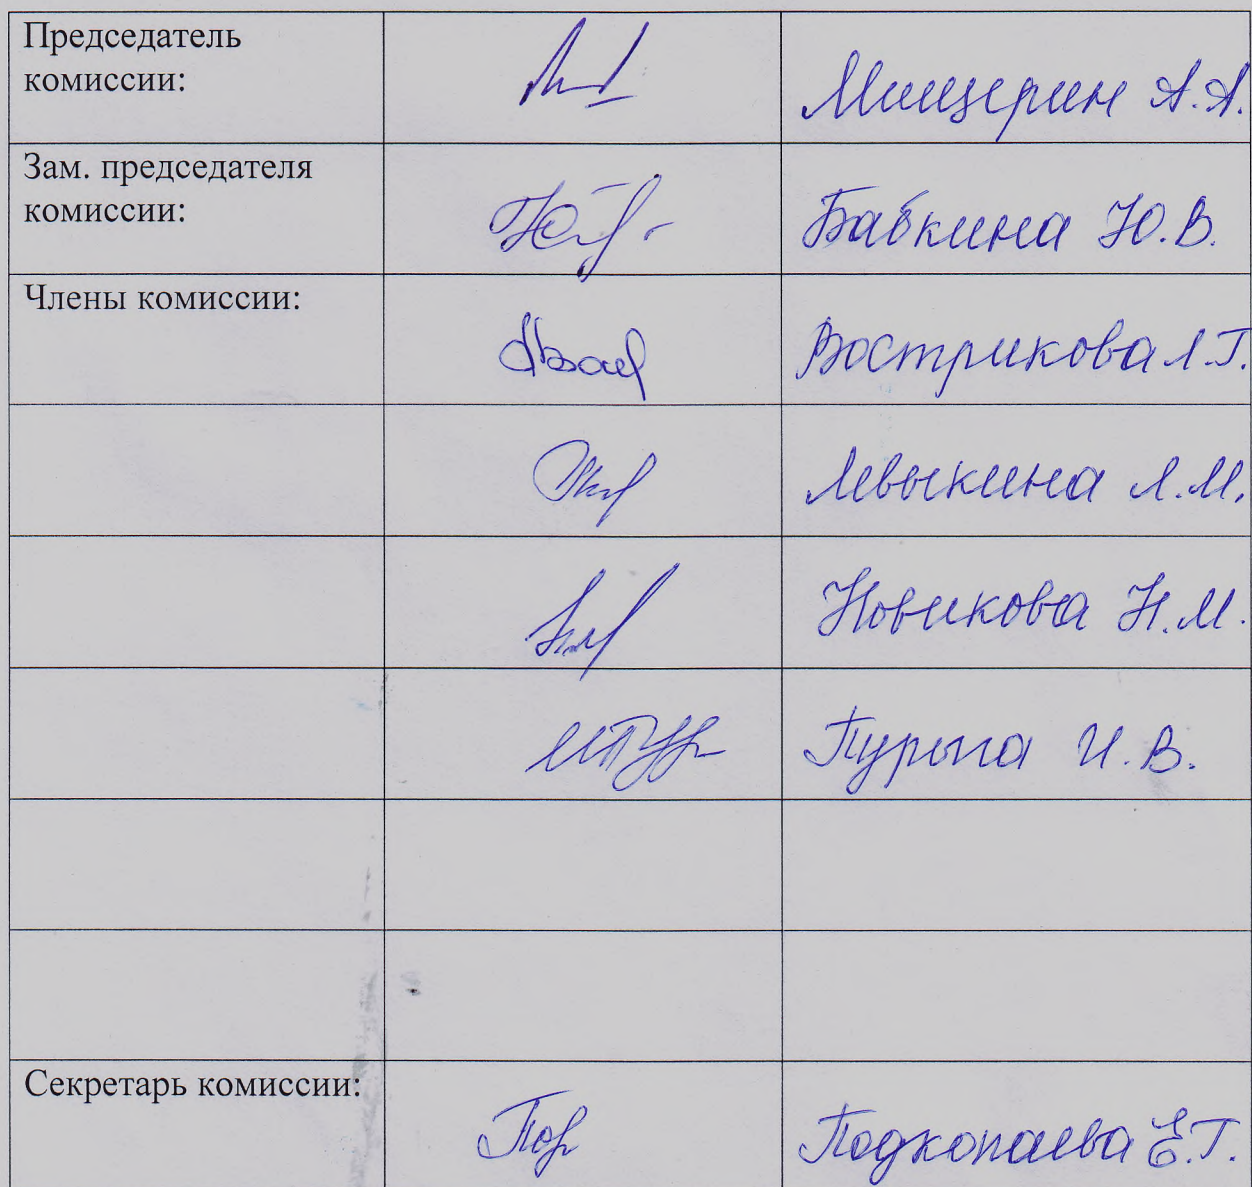 Председатель
комиссии:
Мищерин А.А.
Зам. председателя
комиссии:
Бабкина Ю.В.
Члены комиссии:
Вострикова Л.Г.
Левыкина Л.М.
Новикова Н.М.
Пурыга И.В.
Секретарь комиссии:
Подкопаева Е.Г.